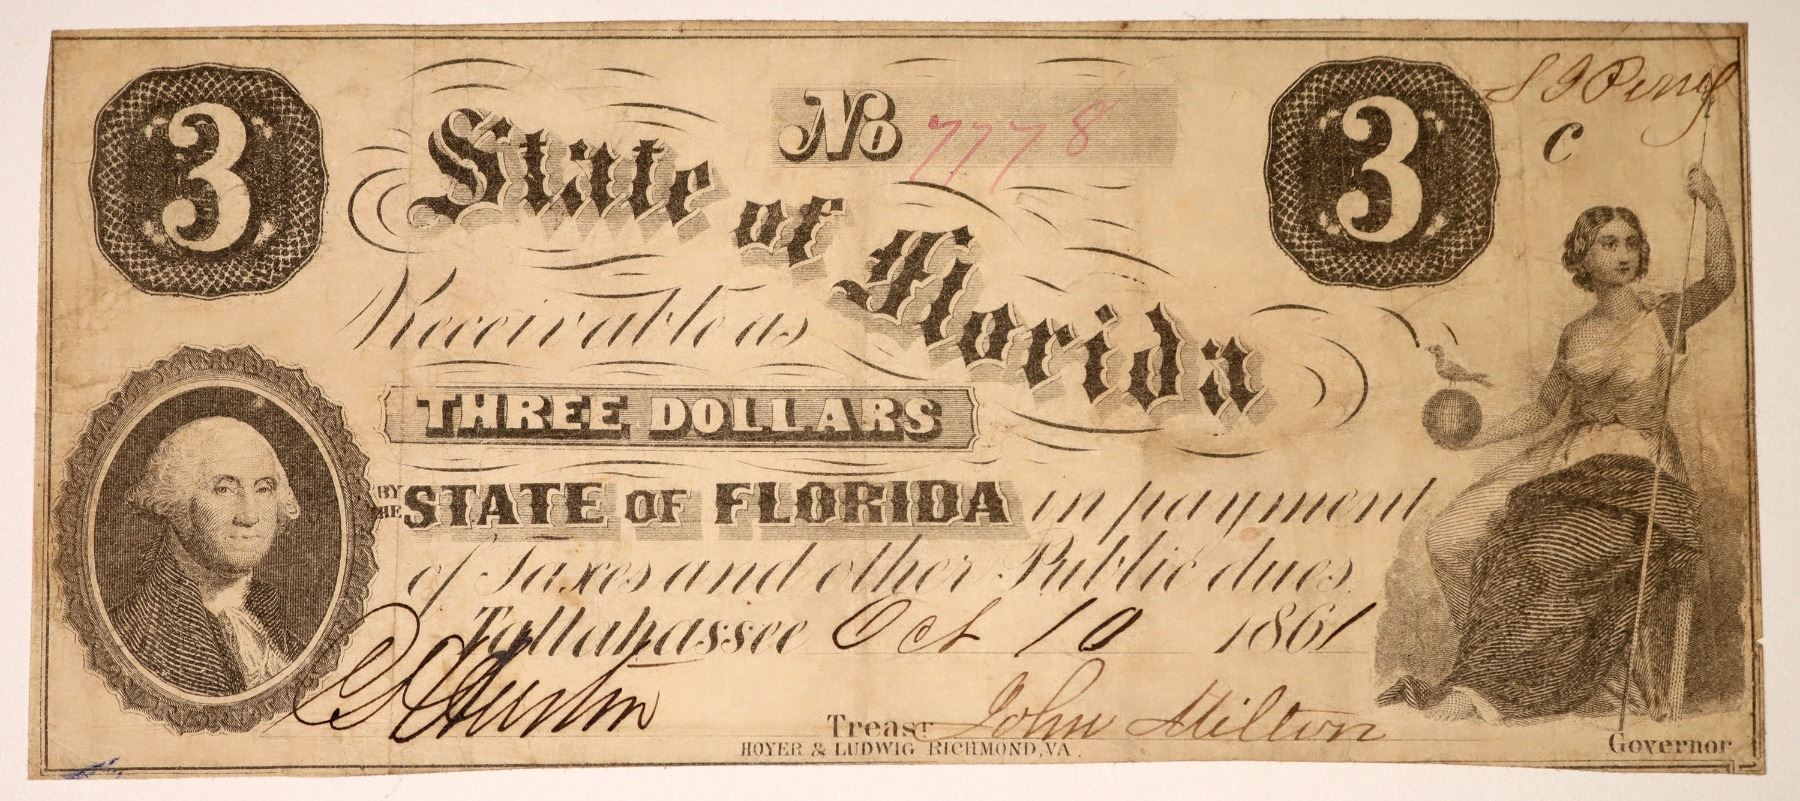 3
State of Florida
No 7778
3
C
Receivable as
THREE DOLLARS
BY THE STATE OF FLORIDA in payment
of Taxes and other Public dues.
Tallahassee Oct 10 1861
C H Austin Treasr John Milton Governor
HOYER & LUDWIG RICHMOND, VA.